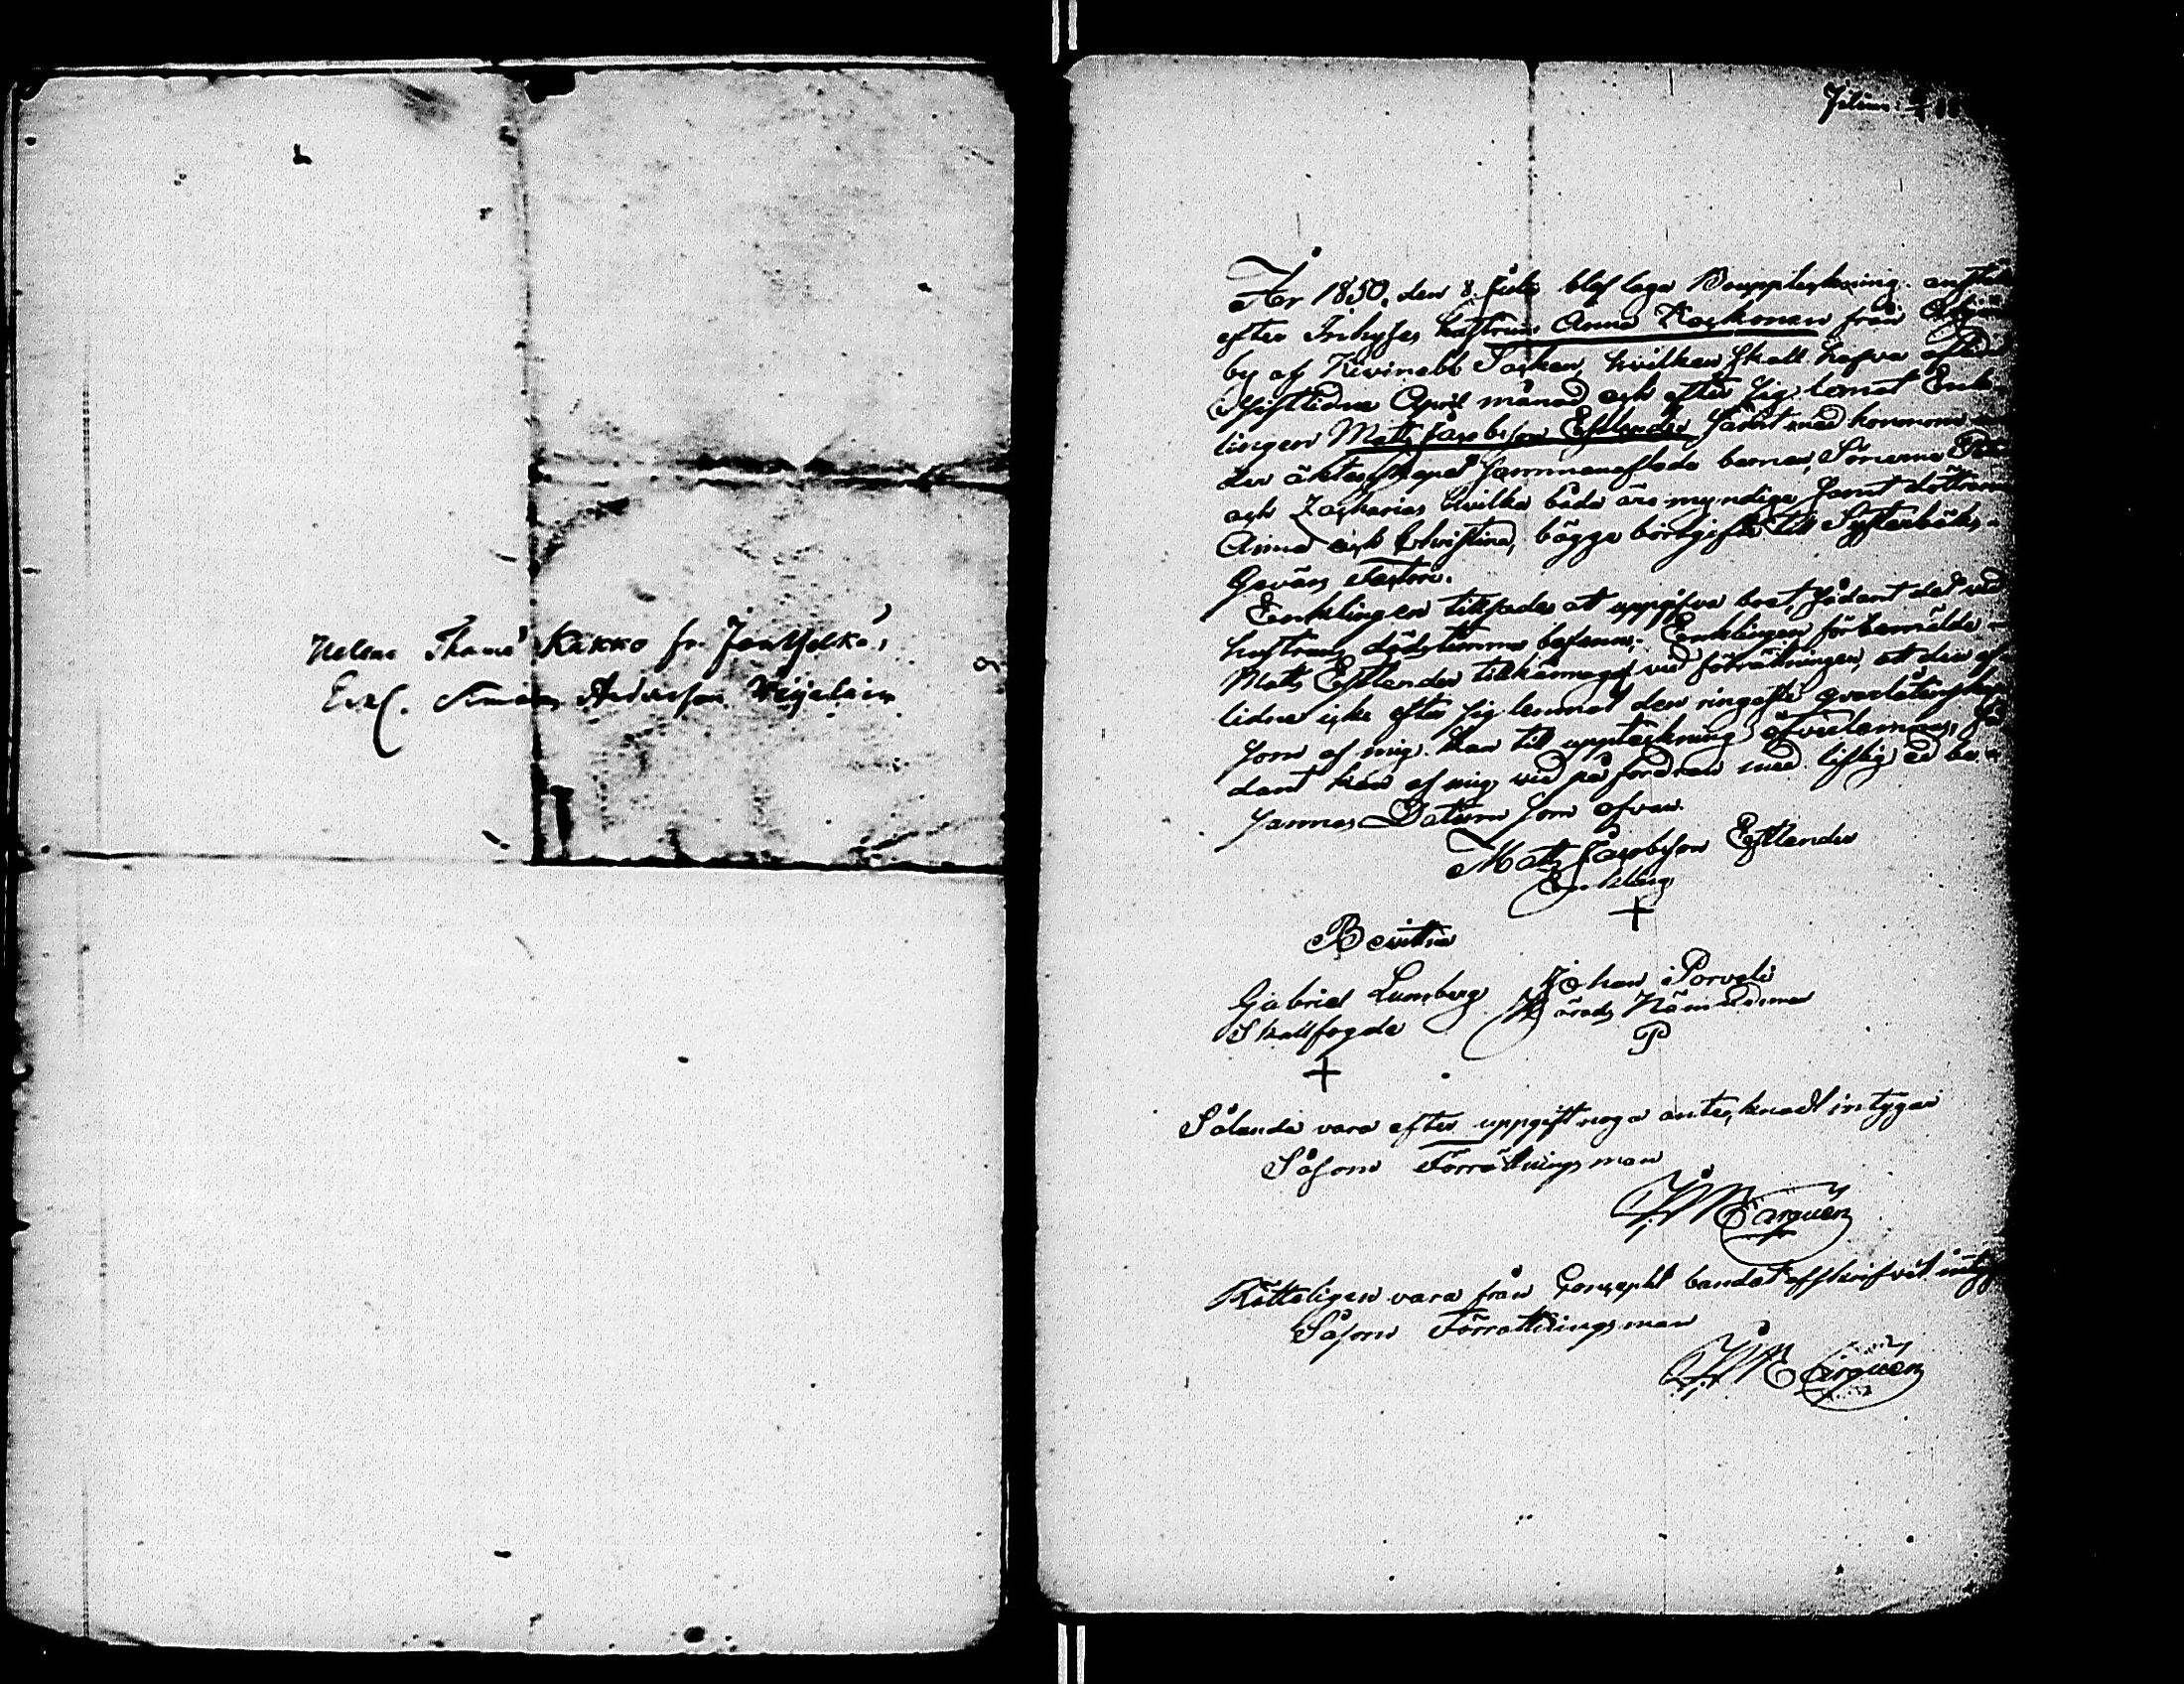 Helena Thoma Kakko fr. Jentselkä,
Enkl. Simon Andersson Weijalain
År 1850, den 8 Julii blef laga Bouppteckning anstäld
efter Inhyses hustrun Anna Kackonen från
by af Kivinebb Socken, hvilken skall hafva aflidit
sistlidne April månad och efter sig lemnat Enk-
lingen Matts Jacobsson Estlander samt med honom
der äktenskapet sammanaflade barnen, Sönerne
och Zacharias hvilka båda äro myndige samt döttrarne
Anna och Christina, bägge bortgifte till Systerbäcks
Gevärs Factori.
Enklingen tillsades at uppgifva boet sådant det vid
hustruns dödstimma befanns. Enklingen förbemälde
Matts Estlander tillkännagaf vid förrättningen, at den af-
lidne icke efter sig lemnat den ringaste qvarlåtenskap
som af mig kan til uppteckning öfverlemnas, så-
dant kan af mig vid påfordran med liflig ed be-
sannas Datum som ofvan.
Matts Jacobsson Estlander
Enkling
+
Bevittna
Gabriel Lumberg Johan Porvali
Skallfogde Härads Nämndeman
+ P
Sålunda vara efter uppgift noga antecknadt intygar
Såsom Förrättningsman
Rätteligen vara från Concepht bandet afskrifvit intyg
Såsom Förrattningsman